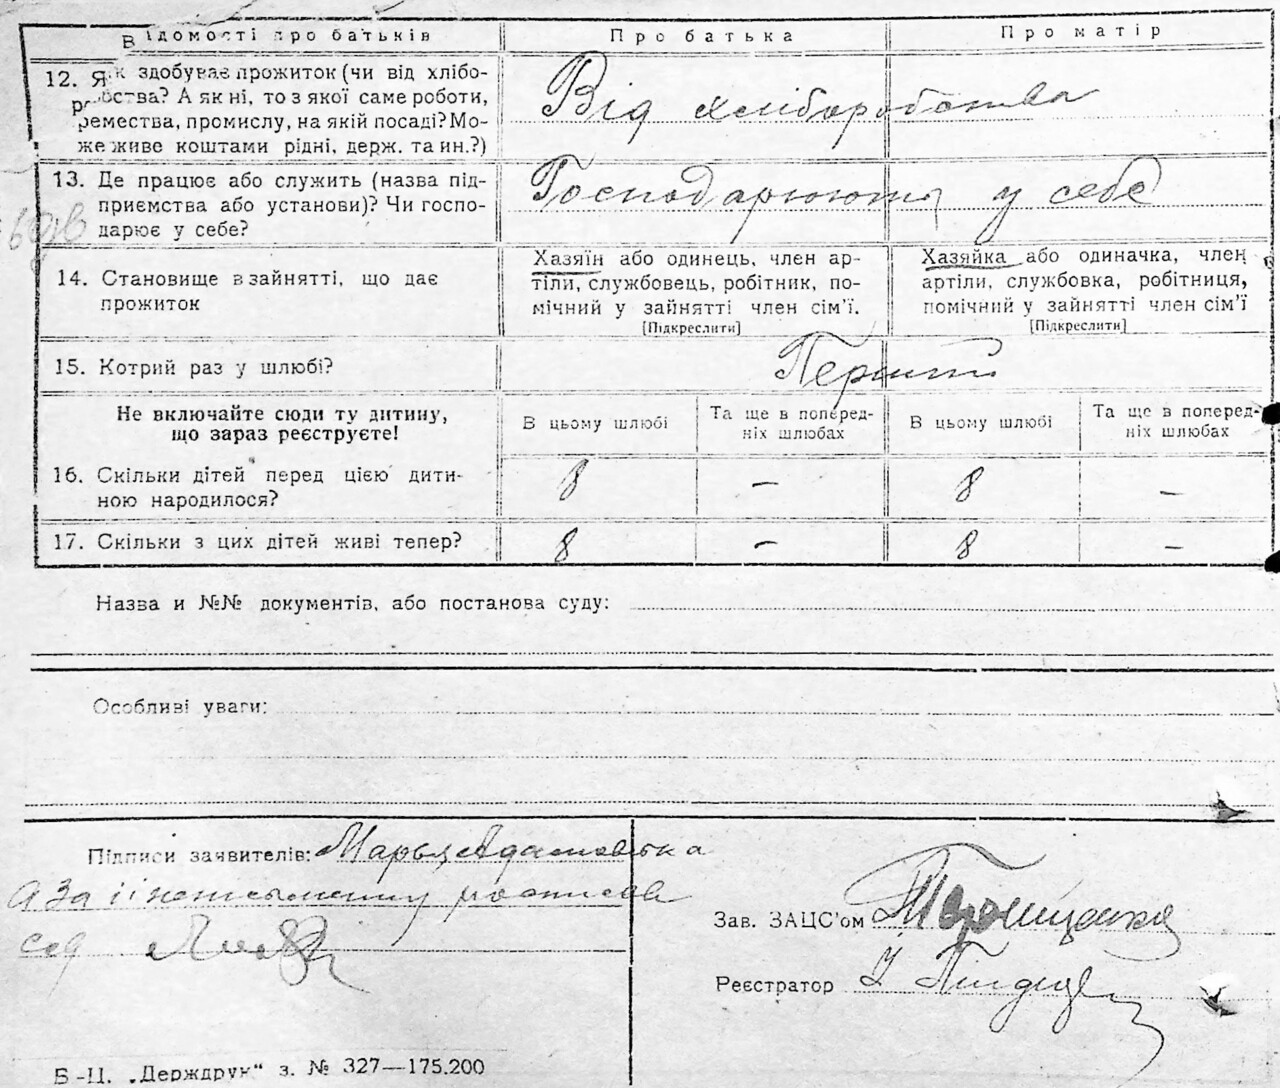 Відомості про батьків Про батька Про матір
12. Як здобуває прожиток (чи від хлібо-
робства? А як ні, то з якої саме роботи,
ремества, промислу, на якій посаді? Мо-
же живе коштами рідні, держ. та ин.?)
Від хліборобства
13. Де працює або служить (назва під-
приємства або установи)? Чи госпо-
дарює у себе?
Господарюють у себе
14. Становище в зайнятті, що дає
прожиток
Хазяїн або одинець, член ар-
тіли, службовець, робітник, по-
мічний у зайнятті член сім’ї.
[Підкреслити]
Хазяйка або одиначка, член
артіли, службовка, робітниця,
помічний у зайнятті член сім’ї
[Підкреслити]
15. Котрий раз у шлюбі?
Перший
Не включайте сюди ту дитину,
що зараз реєструєте!
В цьому шлюбі
Та ще в поперед-
ніх шлюбах
В цьому шлюбі
Та ще в поперед-
ніх шлюбах
16. Скільки дітей перед цією дити-
ною народилося?
8 – 8 –
17. Скільки з цих дітей живі тепер? 8 – 8 –
Назва и №№ документів, або постанова суду:
Особливі уваги:
Підписи заявителів: Марья
а за її
Зав. ЗАЦС’ом
Реєстратор
Б-Ц. „Держдрук“ з. № 327—175.200